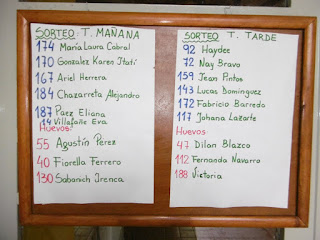 SORTEO T. MAÑANA
174 María Laura Cabral
170 Gonzalez Karen Itatí
167 Ariel Herrera
184 Chazarreta Alejandro
187 Paez Eliana
14 Villafañe Eva
Huevos:
55 Agustín Perez
40 Fiorella Ferrero
130 Sabanich Irenca
SORTEO T. TARDE
92 Haydee
72 Nay Bravo
159 Jean Pintos
143 Lucas Dominguez
172 Fabricio Barredo
117 Johana Lazarte
Huevos
47 Dilan Blazco
112 Fernanda Navarro
188 Victoria